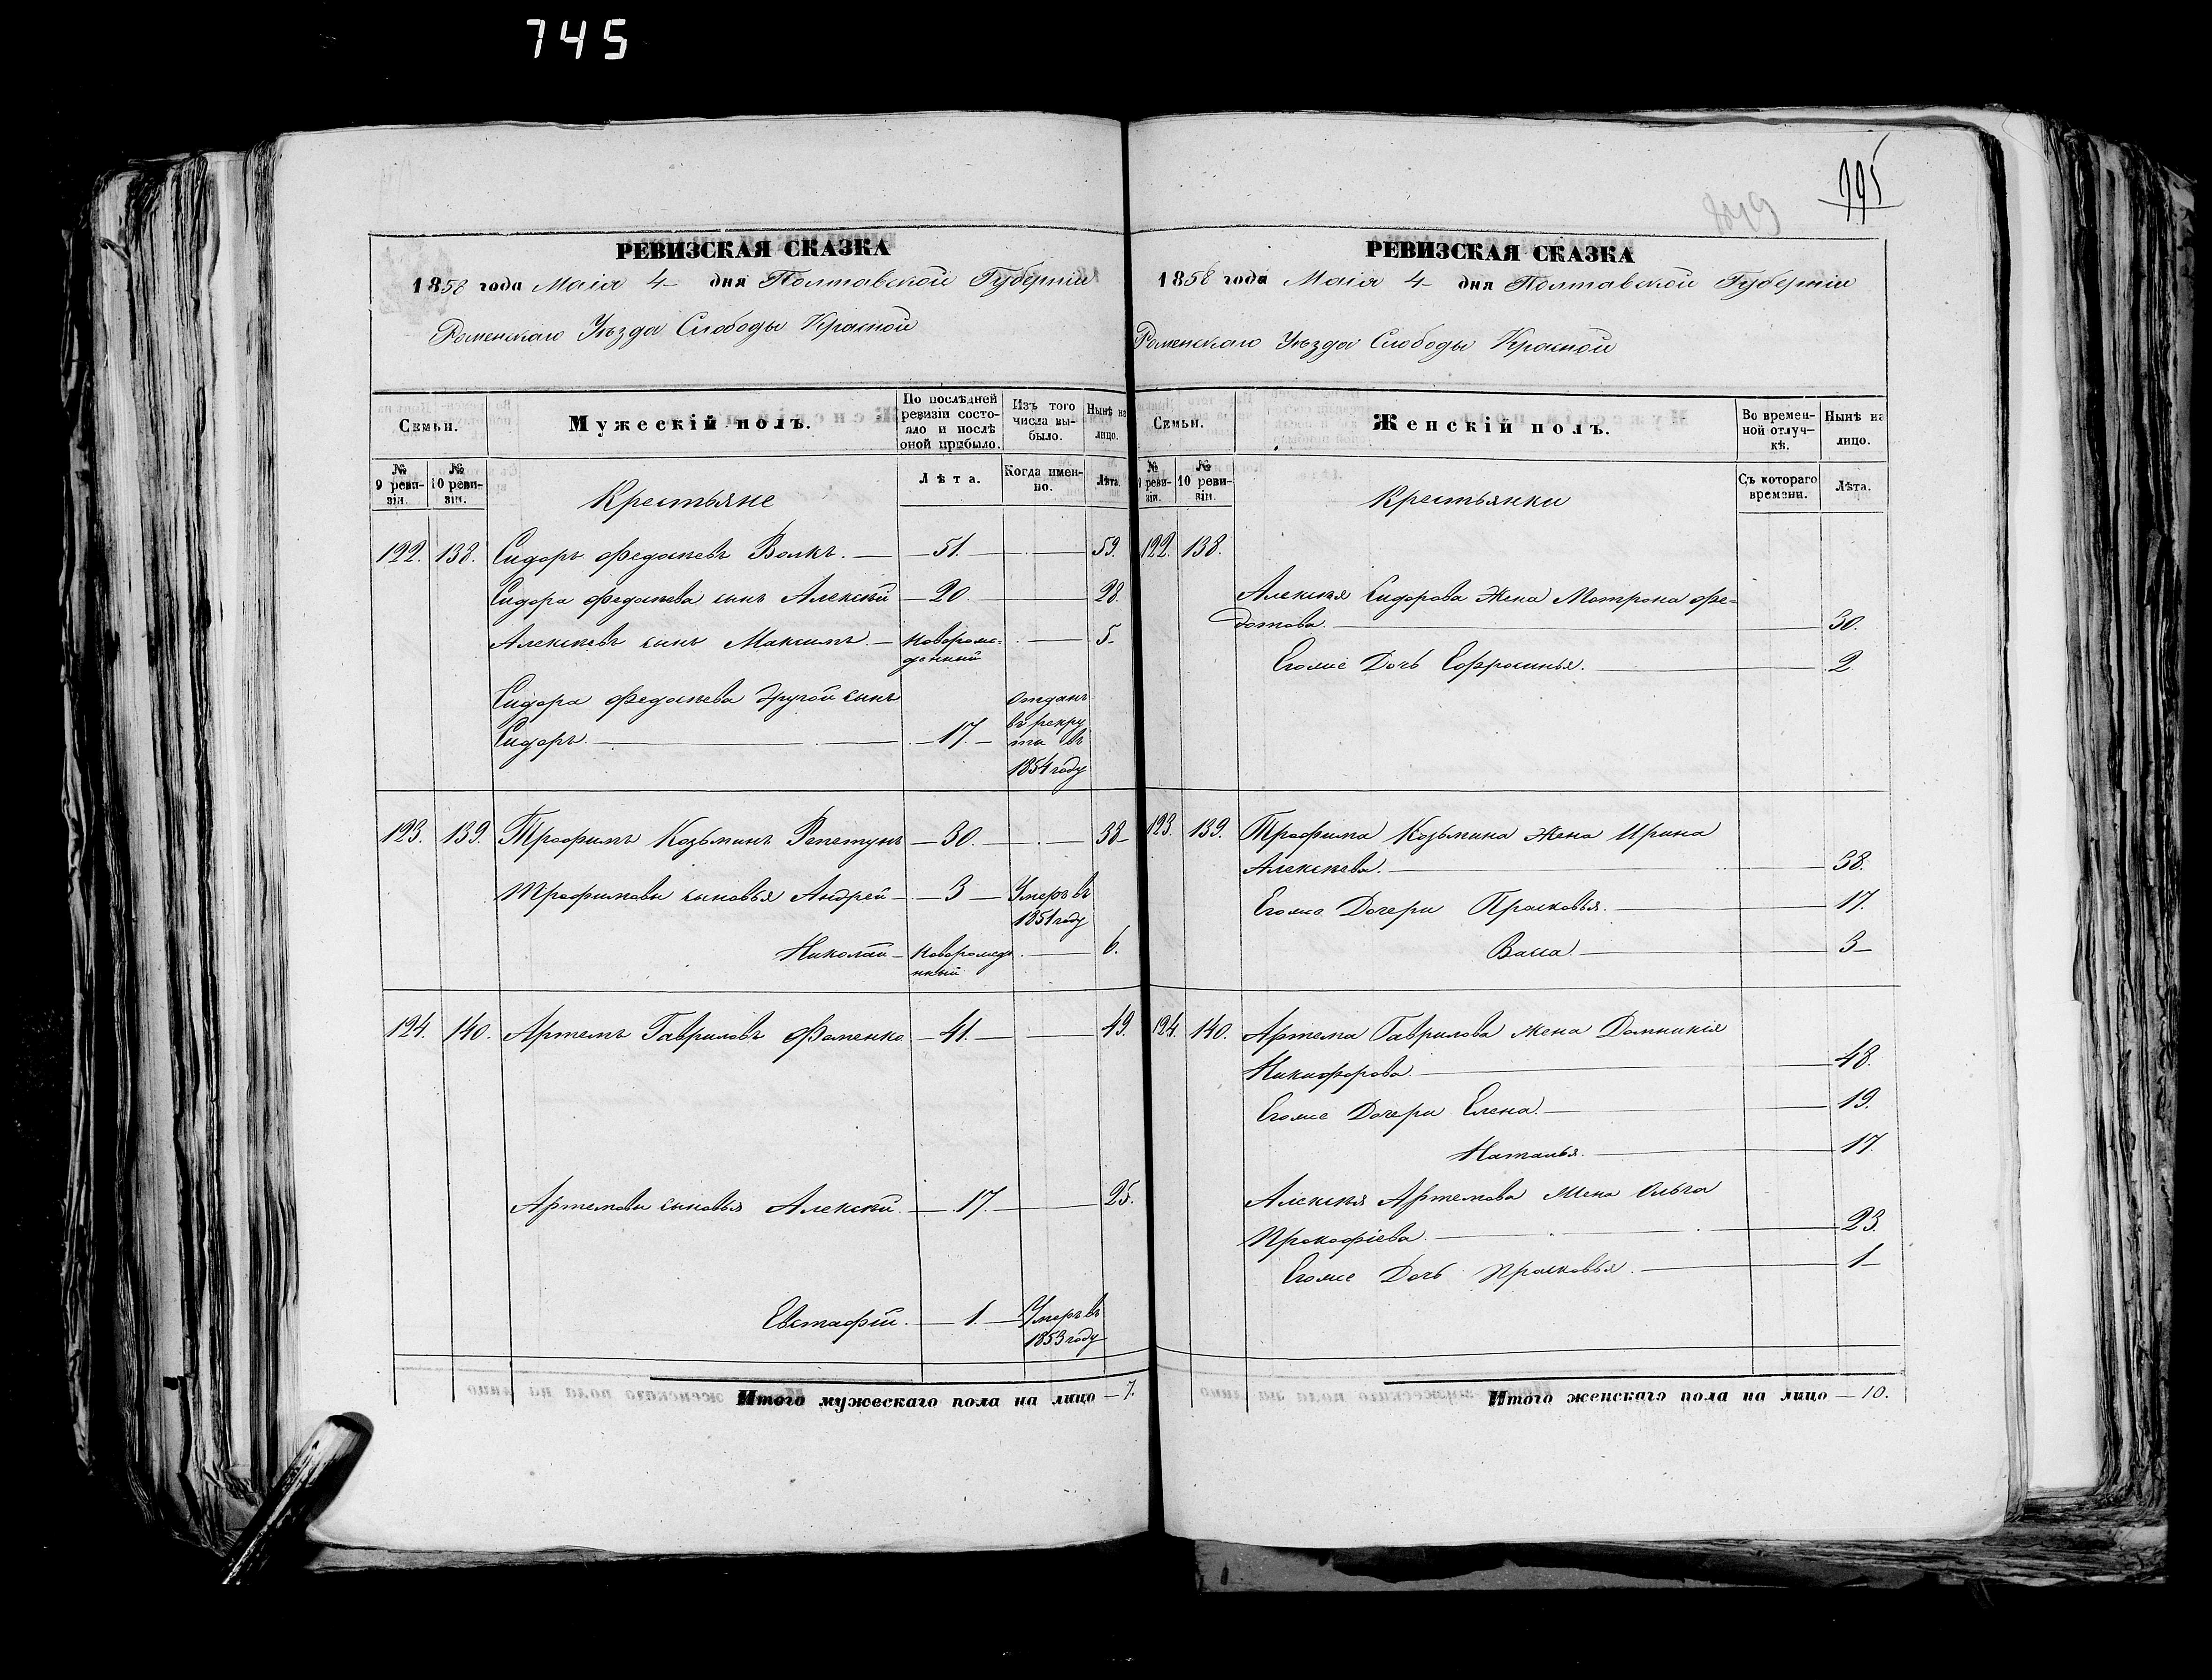 745
РЕВИЗСКАЯ СКАЗКА
1858 года Маія 4 дня Полтавской Губерніи
Роменскаго Уѣзда Слободы Красной
Семьи.
Мужескій полъ.
По послѣдней ревизіи состояло и послѣ оной прибыло.
Изъ того числа выбыло.
Нынѣ на лицо.
№ 9 ревизіи.
№ 10 ревизіи.
Крестьяне
Лѣта.
Когда именно.
Лѣта.
122. 138. Сидоръ Федосѣевъ Волкъ. — 51. — 59.
Сидора Федосѣева сынъ Алексѣй — 20. — 28.
Алексѣевъ сынъ Максимъ — новорожденный — 5
Сидора Федосѣева другой сынъ
Сидоръ. — 17 — отданъ въ рекруты въ 1854 году
123. 139. Трофимъ Козьминъ Репетунъ — 30. — 38
Трофимовы сыновья Андрей — 3 — Умеръ въ 1851 году
Николай — новорожденный — 6.
124. 140. Артемъ Гавриловъ Фоменко — 41. — 49.
Артемовы сыновья Алексѣй. — 17. — 25.
Евстафій. — 1. — Умеръ въ 1853 году
Итого мужескаго пола на лицо — 7.
995
РЕВИЗСКАЯ СКАЗКА
1858 года Маія 4 дня Полтавской Губерніи
Роменскаго Уѣзда Слободы Красной
Семьи.
Женскій полъ.
Во временной отлучкѣ.
Нынѣ на лицо.
№ 9 ревизіи.
№ 10 ревизіи.
Крестьянки
Съ котораго времени.
Лѣта.
122. 138.
Алексѣя Сидорова Жена Мотрона Фе-
дотова. — 30.
Егоже Дочь Ефросинья. — 2
123. 139. Трофима Козьмина жена Ирина
Алексѣева. — 38.
Егоже Дочери Прасковья. — 17.
Васса. — 3
124. 140. Артема Гаврилова жена Домникія
Никифорова. — 48.
Егоже Дочери Елена. — 19.
Наталья. — 17
Алексѣя Артемова жена Ольга
Прокофіева. — 23.
Егоже Дочь Прасковья. — 1
Итого женскаго пола на лицо — 10.